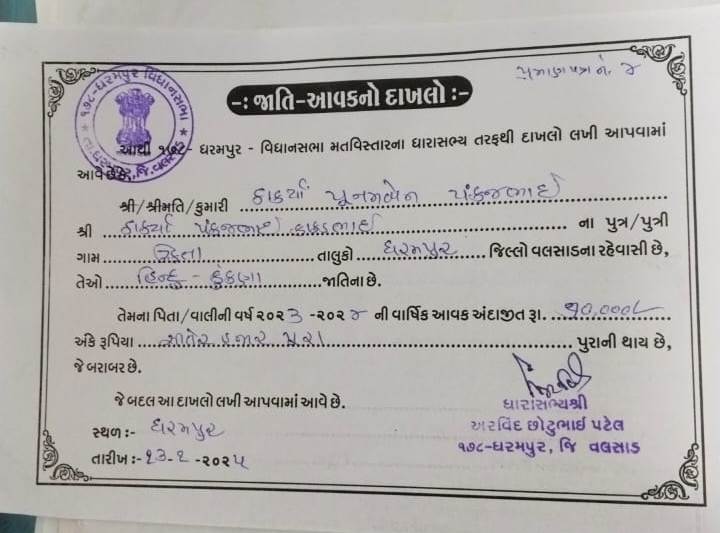 પ્રમાણપત્ર નં. ૪
૧૭૮-ધરમપુર વિધાનસભા
તા.ધરમપુર, જિ. વલસાડ
-: જાતિ-આવકનો દાખલો :-
આથી ૧૭૮ - ધરમપુર - વિધાનસભા મતવિસ્તારના ધારાસભ્ય તરફથી દાખલો લખી આપવામાં
આવે છે કે,
શ્રી/શ્રીમતિ/કુમારી પૂનમબેન પંકજભાઈ
શ્રી પંકજભાઈ ના પુત્ર/પુત્રી
ગામ તાલુકો ધરમપુર જિલ્લો વલસાડના રહેવાસી છે,
તેઓ હિન્દુ - કુંકણા જાતિના છે.
તેમના પિતા/વાલીની વર્ષ ૨૦૨૩ -૨૦૨૪ ની વાર્ષિક આવક અંદાજીત રૂા. ૭૦,૦૦૦/-
અંકે રૂપિયા હજાર પુરા પુરાની થાય છે,
જે બરાબર છે.
જે બદલ આ દાખલો લખી આપવામાં આવે છે.
સ્થળ :- ધરમપુર
તારીખ :- ૧૩-૨-૨૦૨૫
ધારાસભ્યશ્રી
અરવિંદ છોટુભાઈ પટેલ
૧૭૮-ધરમપુર, જિ વલસાડ